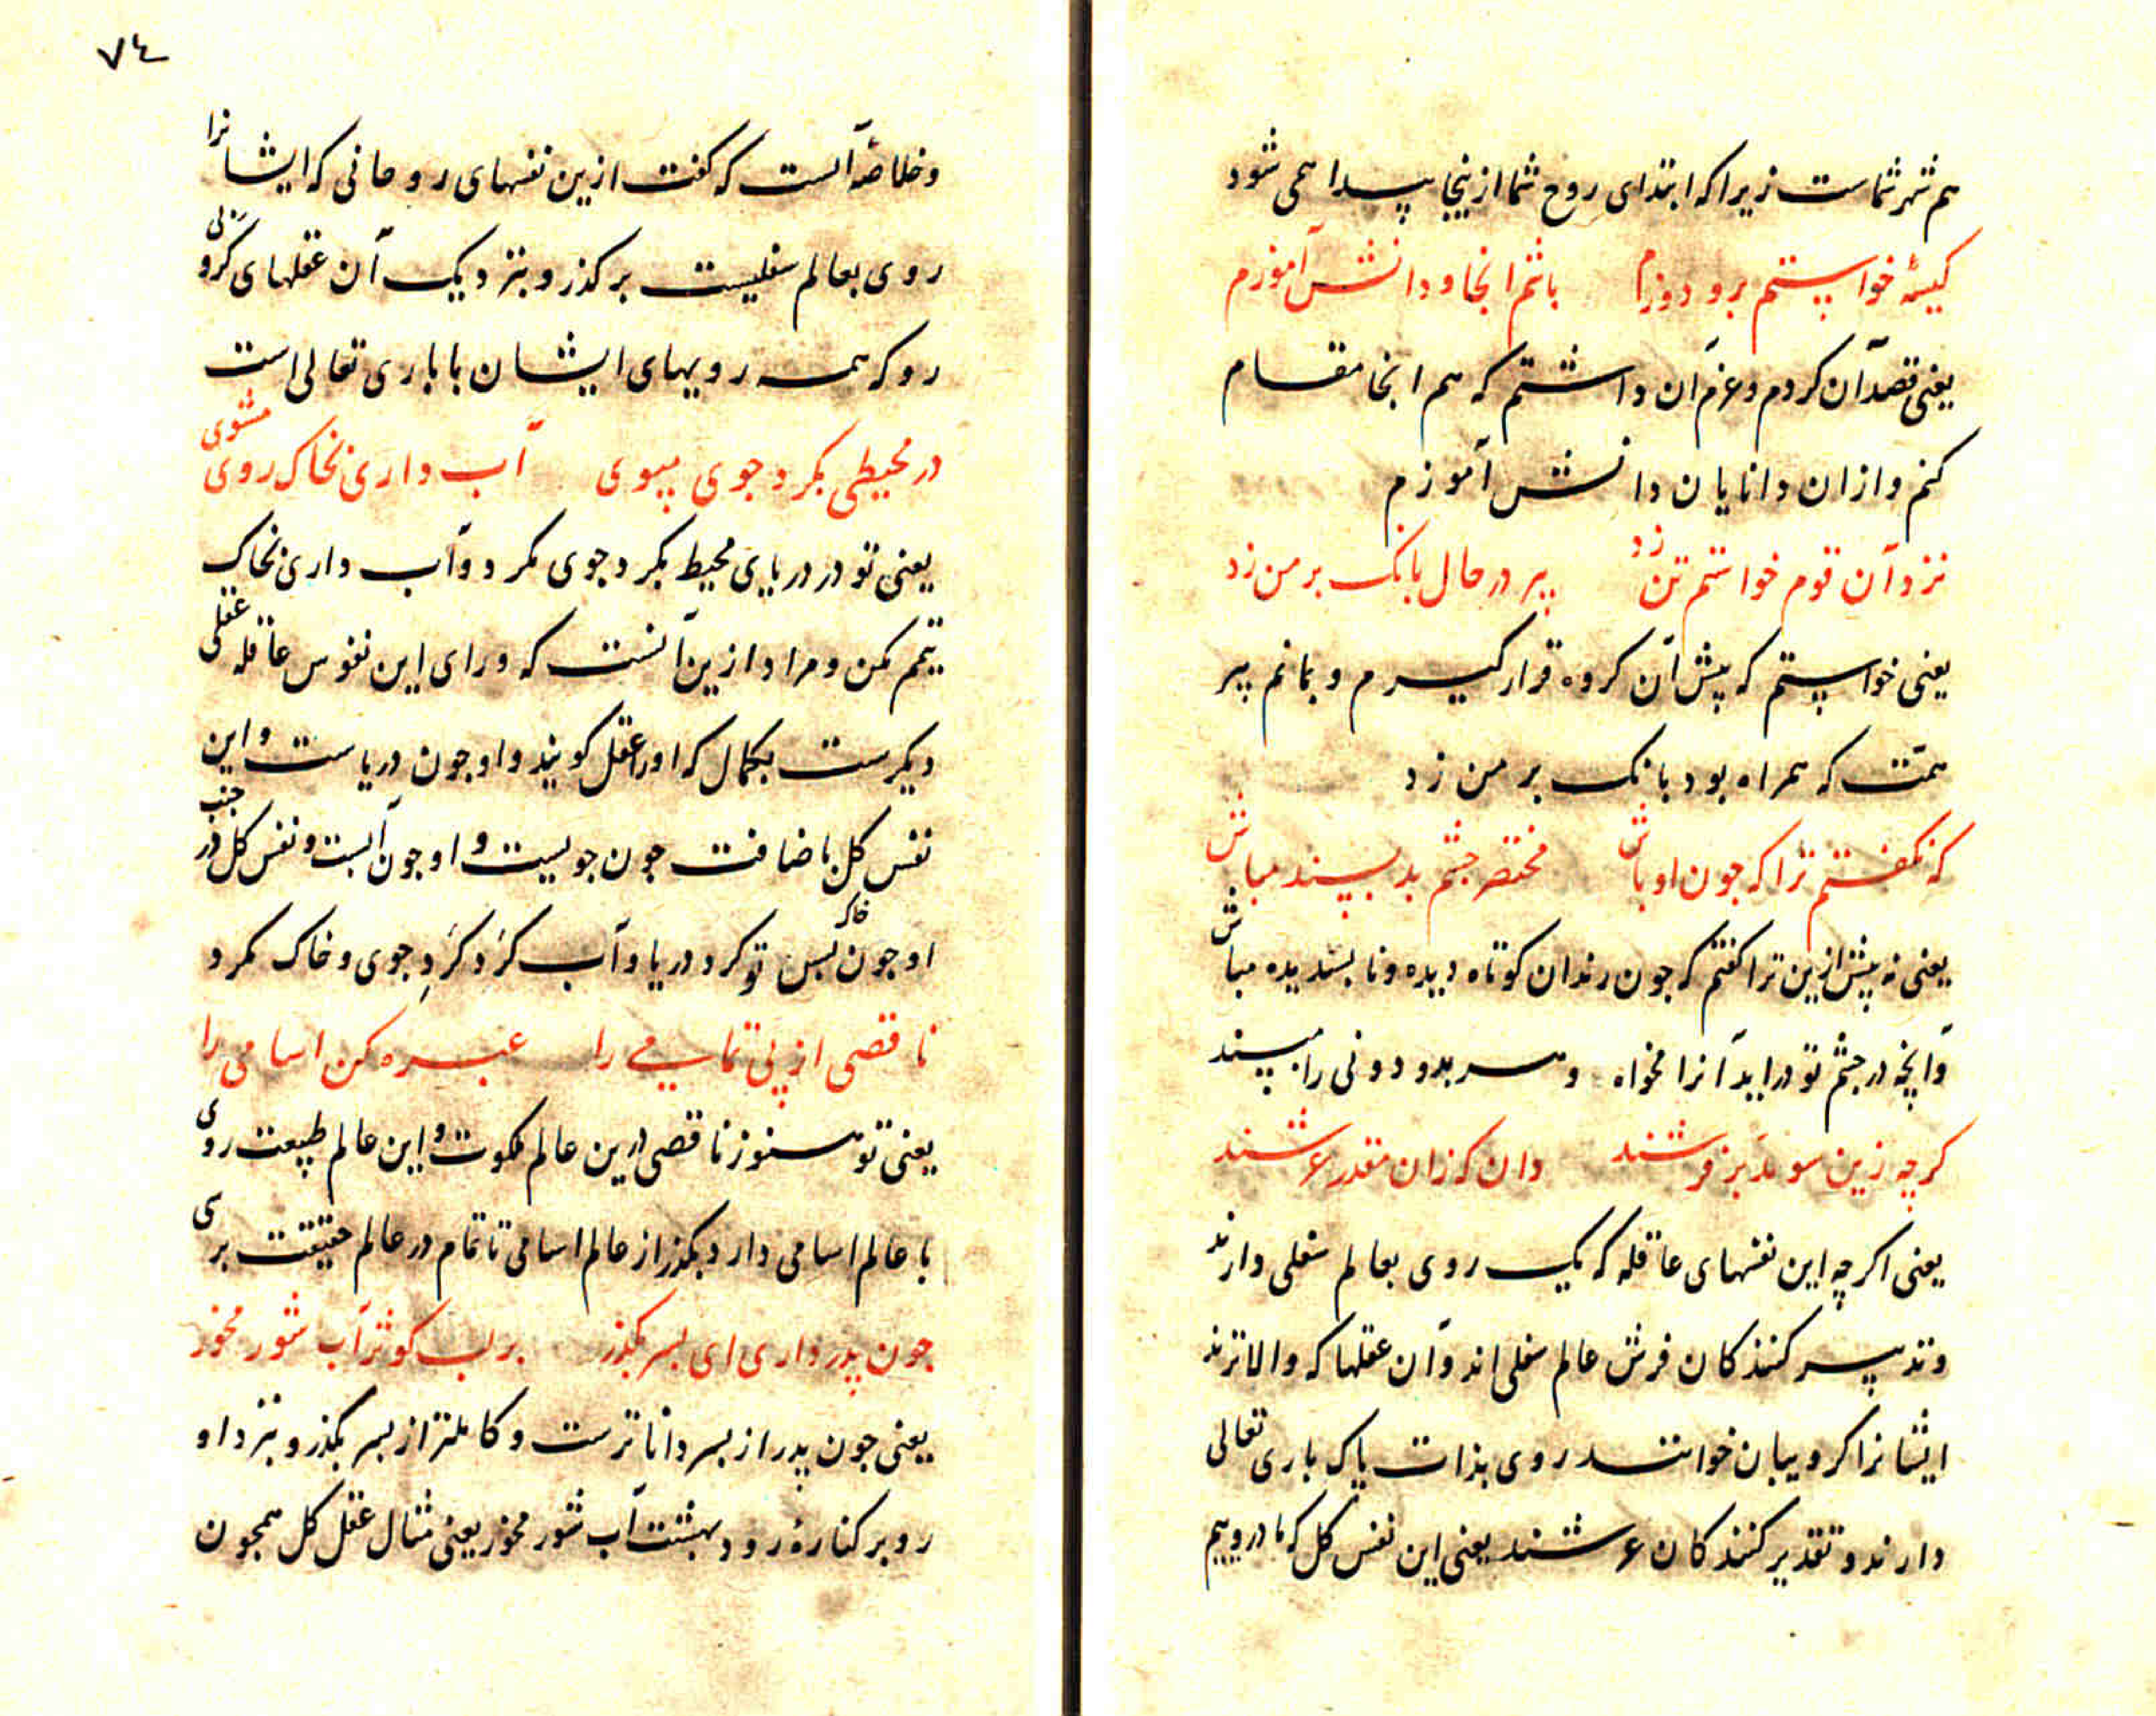 هم شهر شماست زیرا که ابتدای روح شما ازینجا پیدا همی شود
کیسهٔ خواستم برو دوزم باشم انجا و دانش آموزم
یعنی قصد آن کردم و عزم آن داشتم که هم انجا مقام
کنم و ازان دانایان دانش آموزم
نزد آن قوم خواستم تن زد پیر در حال بانک بر من زد
یعنی خواستم که پیش آن کروه قرار کیرم و بمانم پیر
همت که همراه بود بانک بر من زد
که نکفتم ترا که جون اوباش مختصر جشم بد پسند مباش
یعنی نه پیش ازین ترا کفتم که جون رندان کوتاه دیده و نابسندیده مباش
وآنچه در جشم تو دراید آنرا مخواه و سر بدو دونی را مپسند
کرچه زین سو مدبر فرشند دان که زان مقدر عرشند
یعنی اکرچه این نفسهای عاقله که یک روی بعالم سفلی دارند
و تدبیر کنندکان فرش عالم سفلی اند وآن عقلها که والاترند
ایشانرا کروبیان خوانند روی بذات پاک باری تعالی
دارند و تقدیر کنندکان عرشند یعنی این نفس کل که ما دروییم
۷٤
وخلاصهٔ آنست که کفت ازین نفسهای روحانی که ایشانرا
روی بعالم سفلیست برکذر و بنزدیک آن عقلهای کروبی
رو که همه رویهای ایشان با باری تعالی است
مثنوی
در محیطی بکرد جوی مپوی آب داری بخاک روی
یعنی تو در دریای محیط بکرد جوی مکرد وآب داری بخاک
تیمم مکن و مراد ازین آنست که ورای این نفوس عاقله عقلی
دیکرست بکمال که اورا عقل کویند و او جون دریاست و این
نفس کل باضافت جون جویست و او جون آبست و نفس کل در جنب
او جون خاک بس تو کرد دریا وآب کرد کرد جوی و خاک مکرد
ناقصی از پی تمامی را عبره کن اسامی را
یعنی تو هنوز ناقصی ازین عالم ملکوت و این عالم طبیعت روی
با عالم اسامی دارد بکذر از عالم اسامی تا تمام در عالم حقیقت برسی
جون پدر داری ای بسر بکذر بر لب کوثر آب شور مخور
یعنی جون پدر از بسر داناترست و کاملتر از بسر بکذر و بنزد او
رو بر کنارهٔ رود بهشت آب شور مخور یعنی مثال عقل کل همجون